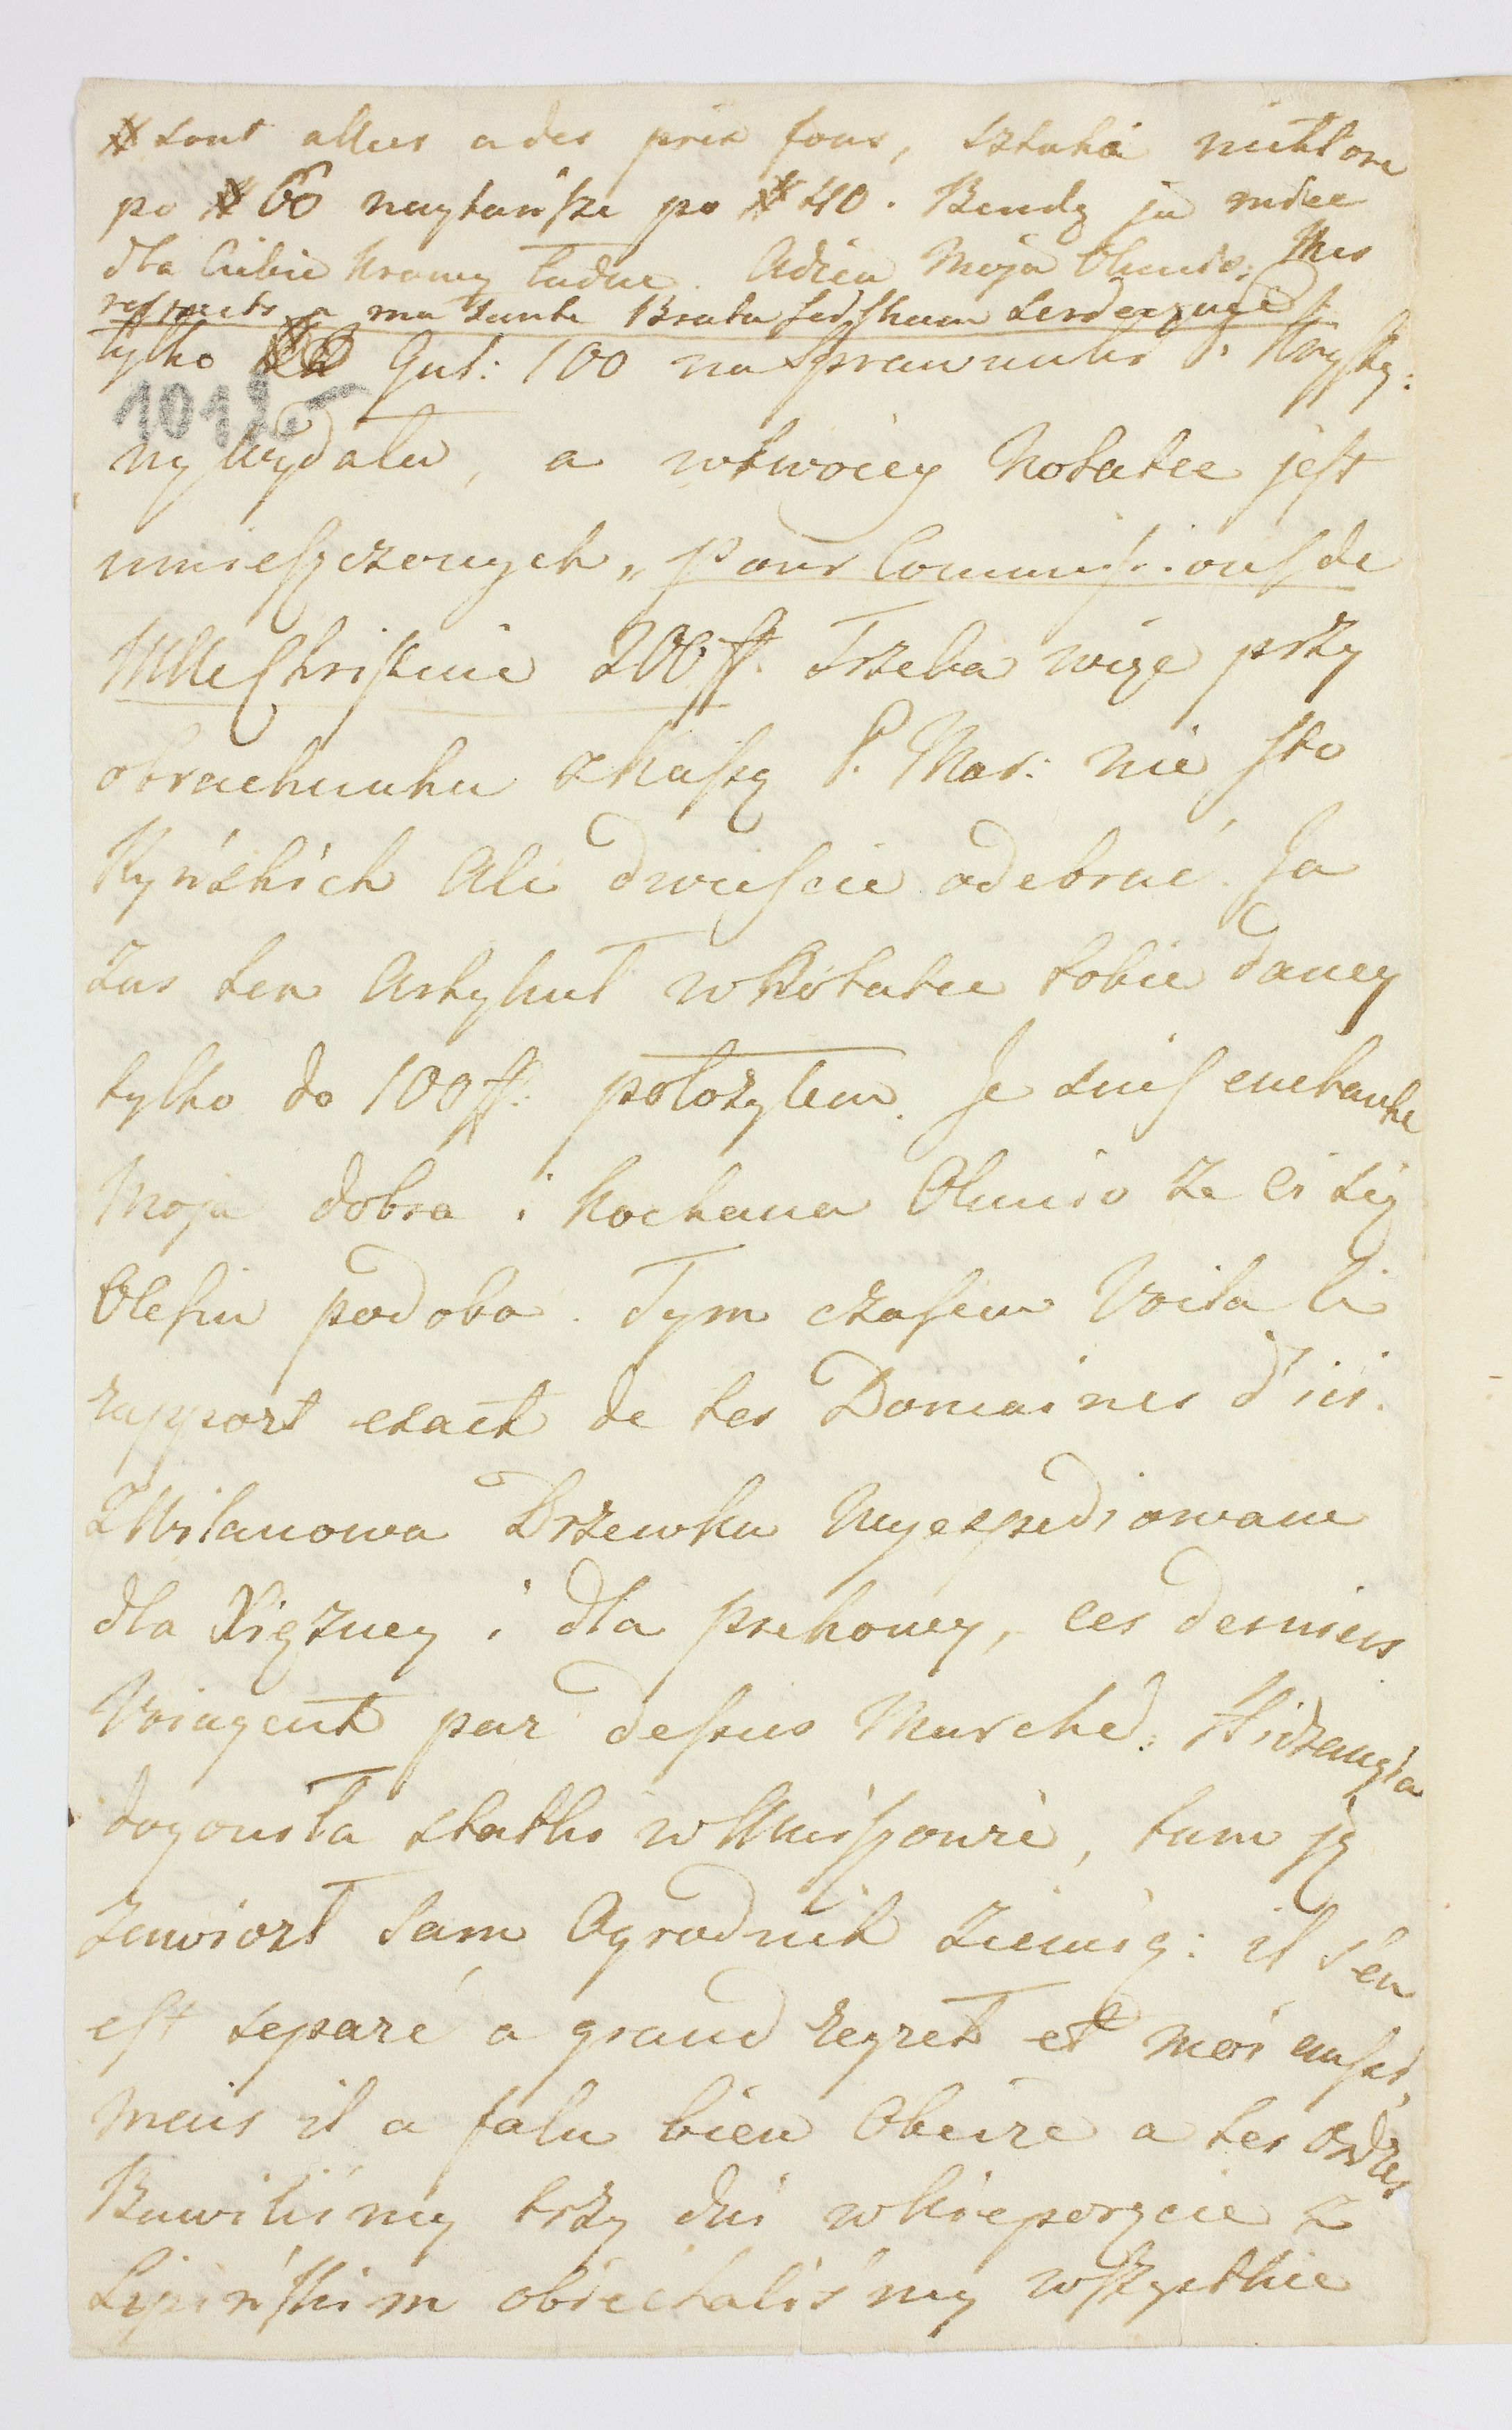 # sont allees a des prix fous, sztuka niektore
po # 60 naytańsze po # 40. Bendą ja widze
dla Ciebie Krowy ładne. Adieu Moja Olesiu; Mes
respects a ma tante Brata serdecznie
tylko Gul: 100 na sprawunki i Krysty:
ny wydała, a wtwoiey Notatce jest
umieszczonych „ pour Commissions de
Mlle Christine 200 ff. Trzeba więc przy
obrachunku zkassą P. Mar: nie sto
Ryńskich Ale dwieście odebrać. Ja
zas ten Artykuł w Notatce tobie daney
tylko do 100 ff: położyłem. Je suis enchante
Moja dobra i kochana Olesiu że ci się
Olesin podoba. Tym czasem Voila le
rapport exact de tes Domaines d'ici.
Z Wilanowa Drzewka wyexpediowane
dla Xiężney i dla , ces derniers
Voiagent par dessus Marché;
dogoniła statki w , tam ją
zawiozł sam Ogrodnik ziemią: il s'en
est separé a grand regret et moi aussi,
mais il a falu bien Obeire a tes Ordres
Bawiliśmy trzy dni w Krzeporzcie z
Lipińskim obiechaliśmy wszystkie
1012